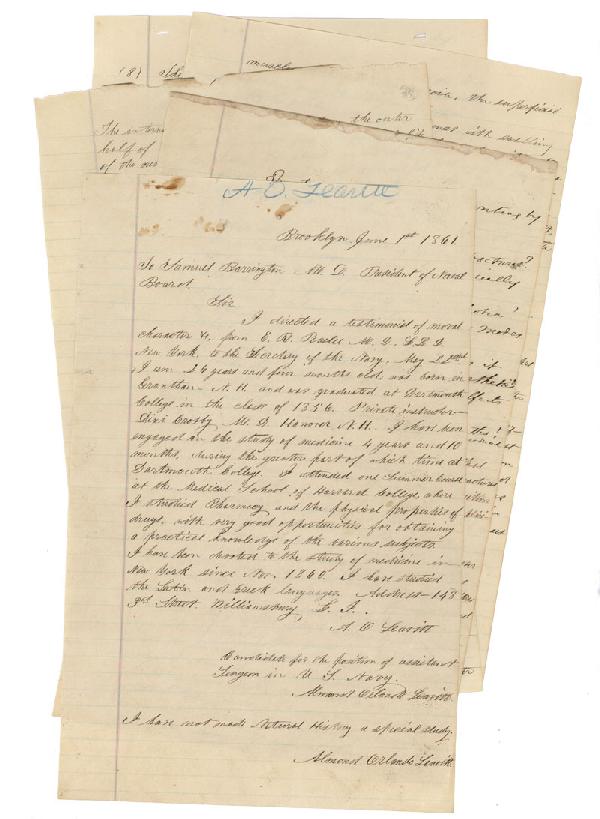 (8)
muscle
the superficial
The intern
half of
of the
the outer
mas with swelling
A O. Leavitt
Brooklyn June 1st 1861
To Samuel Barrington M D. President of Naval
Board.
Sir
I directed a testimonial of moral
character &c. from E. R. Peaslee M. D. LL D
New York, to the Secretary of the Navy, May 22nd
I am 26 years and five months old, was born in
Grantham N. H. and was graduated at Dartmouth
College in the class of 1856. Private instructor—
Dixi Crosby, M. D. Hanover N. H. I have been
engaged in the study of medicine 4 years and 10
months, during the greater part of which time at
Dartmouth College. I attended one Summer course
at the Medical School of Harvard College where
I studied Pharmacy and the physical properties of
drugs, with very good opportunities for obtaining
a practical knowledge of the various subjects.
I have been devoted to the study of medicine in
New York since Nov. 1860. I have studied
the Latin and Greek languages. Address—148
3rd Street. Williamsburg, L. I.
A. O Leavitt
Candidate for the position of assistant
Surgeon in U. S. Navy.
Almond Orlando Leavitt.
I have not made Natural History a special study.
Almond Orlando Leavitt.